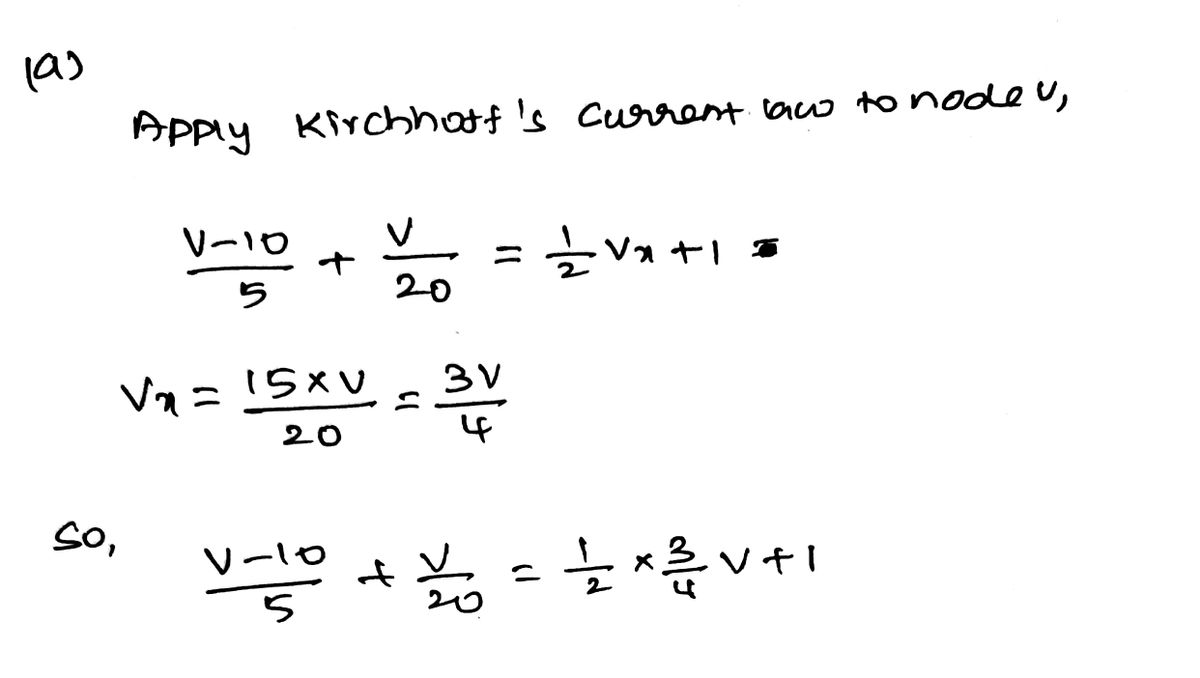 (a)
Apply Kirchhoff's current law to node v,
(V-10)/5 + V/20 = 1/2 Vx + 1
Vx = (15×V)/20 = 3V/4
So,
(V-10)/5 + V/20 = 1/2 × 3/4 V + 1